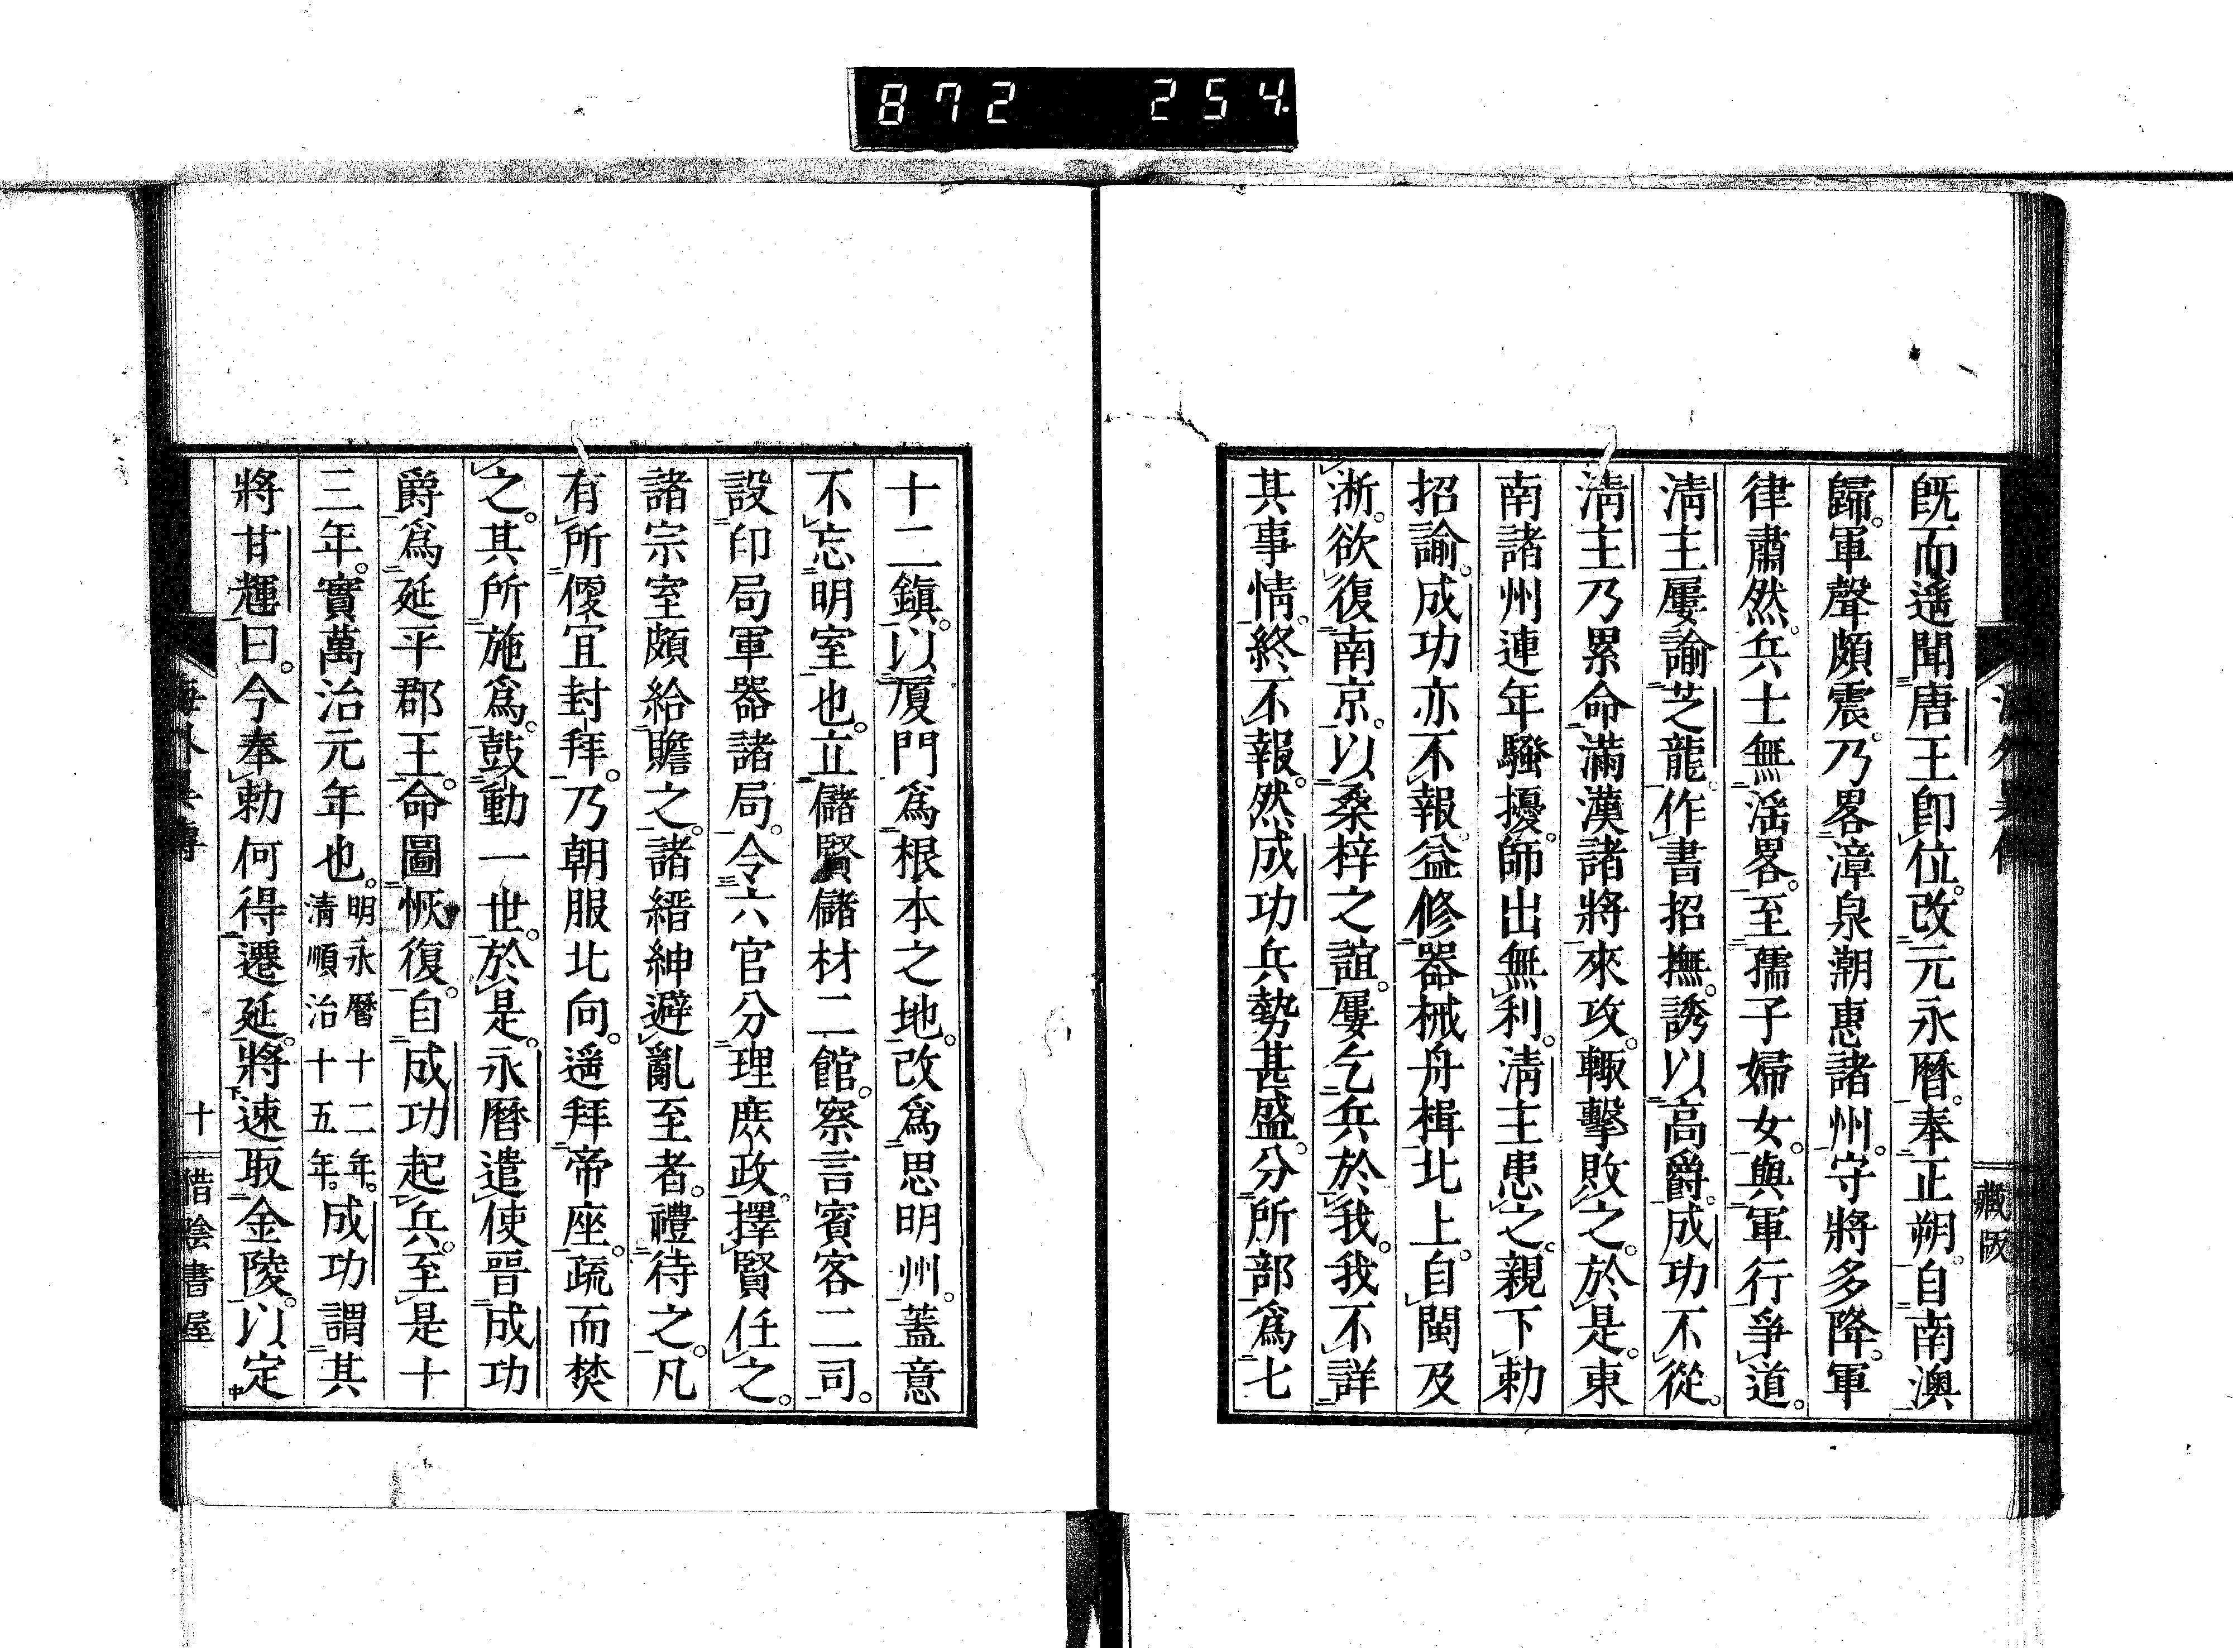 872 254
海外異傳
藏版
既而遥聞唐王卽位。改元永暦。奉正朔。自南澳
歸。軍聲頗震。乃畧漳泉潮惠諸州。守將多降。軍
律肅然。兵士無滛畧。至孺子婦女。與軍行爭道。
淸主屢諭芝龍。作書招撫。誘以高爵。成功不從。
淸主乃累命滿漢諸將來攻。輙擊敗之。於是。東
南諸州連年騷擾。師出無利。淸主患之。親下勅
招諭。成功亦不報。益修器械舟楫北上。自閩及
浙。欲復南京。以桑梓之誼。屢乞兵於我。我不詳
其事情。終不報。然成功兵勢甚盛。分所部爲七
十二鎭。以厦門爲根本之地。改爲思明州。蓋意
不忘明室也。立儲賢儲材二館。察言賓客二司。
設印局軍器諸局。令六官分理庶政。擇賢任之。
諸宗室頗給贍之。諸縉紳避亂至者。禮待之。凡
有所便宜封拜。乃朝服北向。遥拜帝座。疏而焚
之。其所施爲。鼓動一世。於是。永暦遣使晋成功
爵爲延平郡王。命圖恢復。自成功起兵。至是十
三年。實萬治元年也。明永暦十二年。淸順治十五年。成功謂其
將甘輝曰。今奉勅何得遷延。將速取金陵。以定
海外異傳
十
惜陰書屋